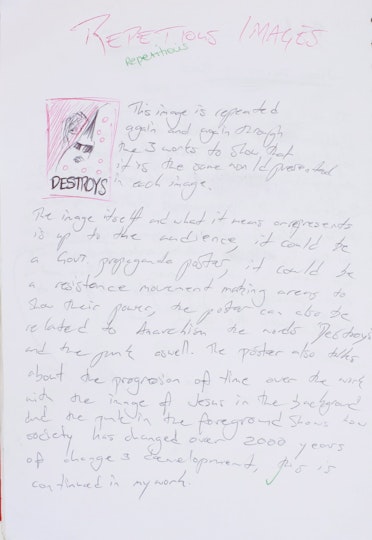 REPETIOUS IMAGES
Repetitious
This image is repeated
again and again through
the 3 works to show that
it is the same world presented
in each image.
DESTROYS
The image itself and what it means or represents
is up to the audience, it could be
a Govt propaganda poster, it could be
a resistence movement making areas to
show their power, the poster can also be
related to Anarchism the words Destroys
and the punk aswell. The poster also talks
about the progression of time over the work
with the image of Jesus in the background
and the punk in the foreground shows how
society has changed over 2000 years
of change & development, this is
continued in my work.